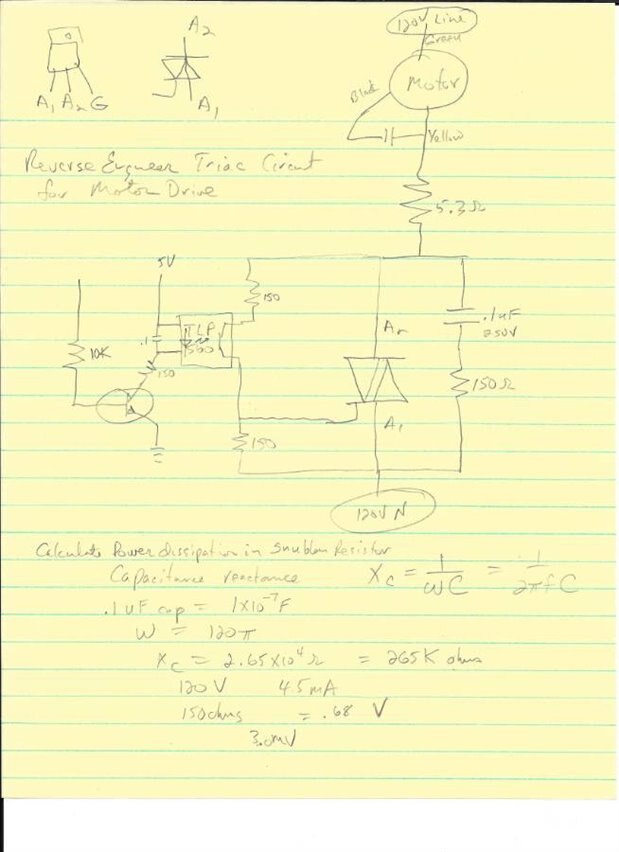 120V Line
Green
A2
Motor
Black
A1 A2 G
A1
Yellow
Reverse Engineer Triac Circuit
for Motor Drive
5.3Ω
5V
150
.1uF
250V
A2
.1
TLP
10K
150
150Ω
A1
150
120V N
Calculate Power dissipation in Snubber Resistor
Capacitance reactance
Xc = 1/ωC = 1/2πfC
.1 uF cap = 1x10^-7 F
W = 120π
Xc = 2.65x10^4 Ω = 265K ohms
120 V 45mA
150ohms = .68 V
3.0mV